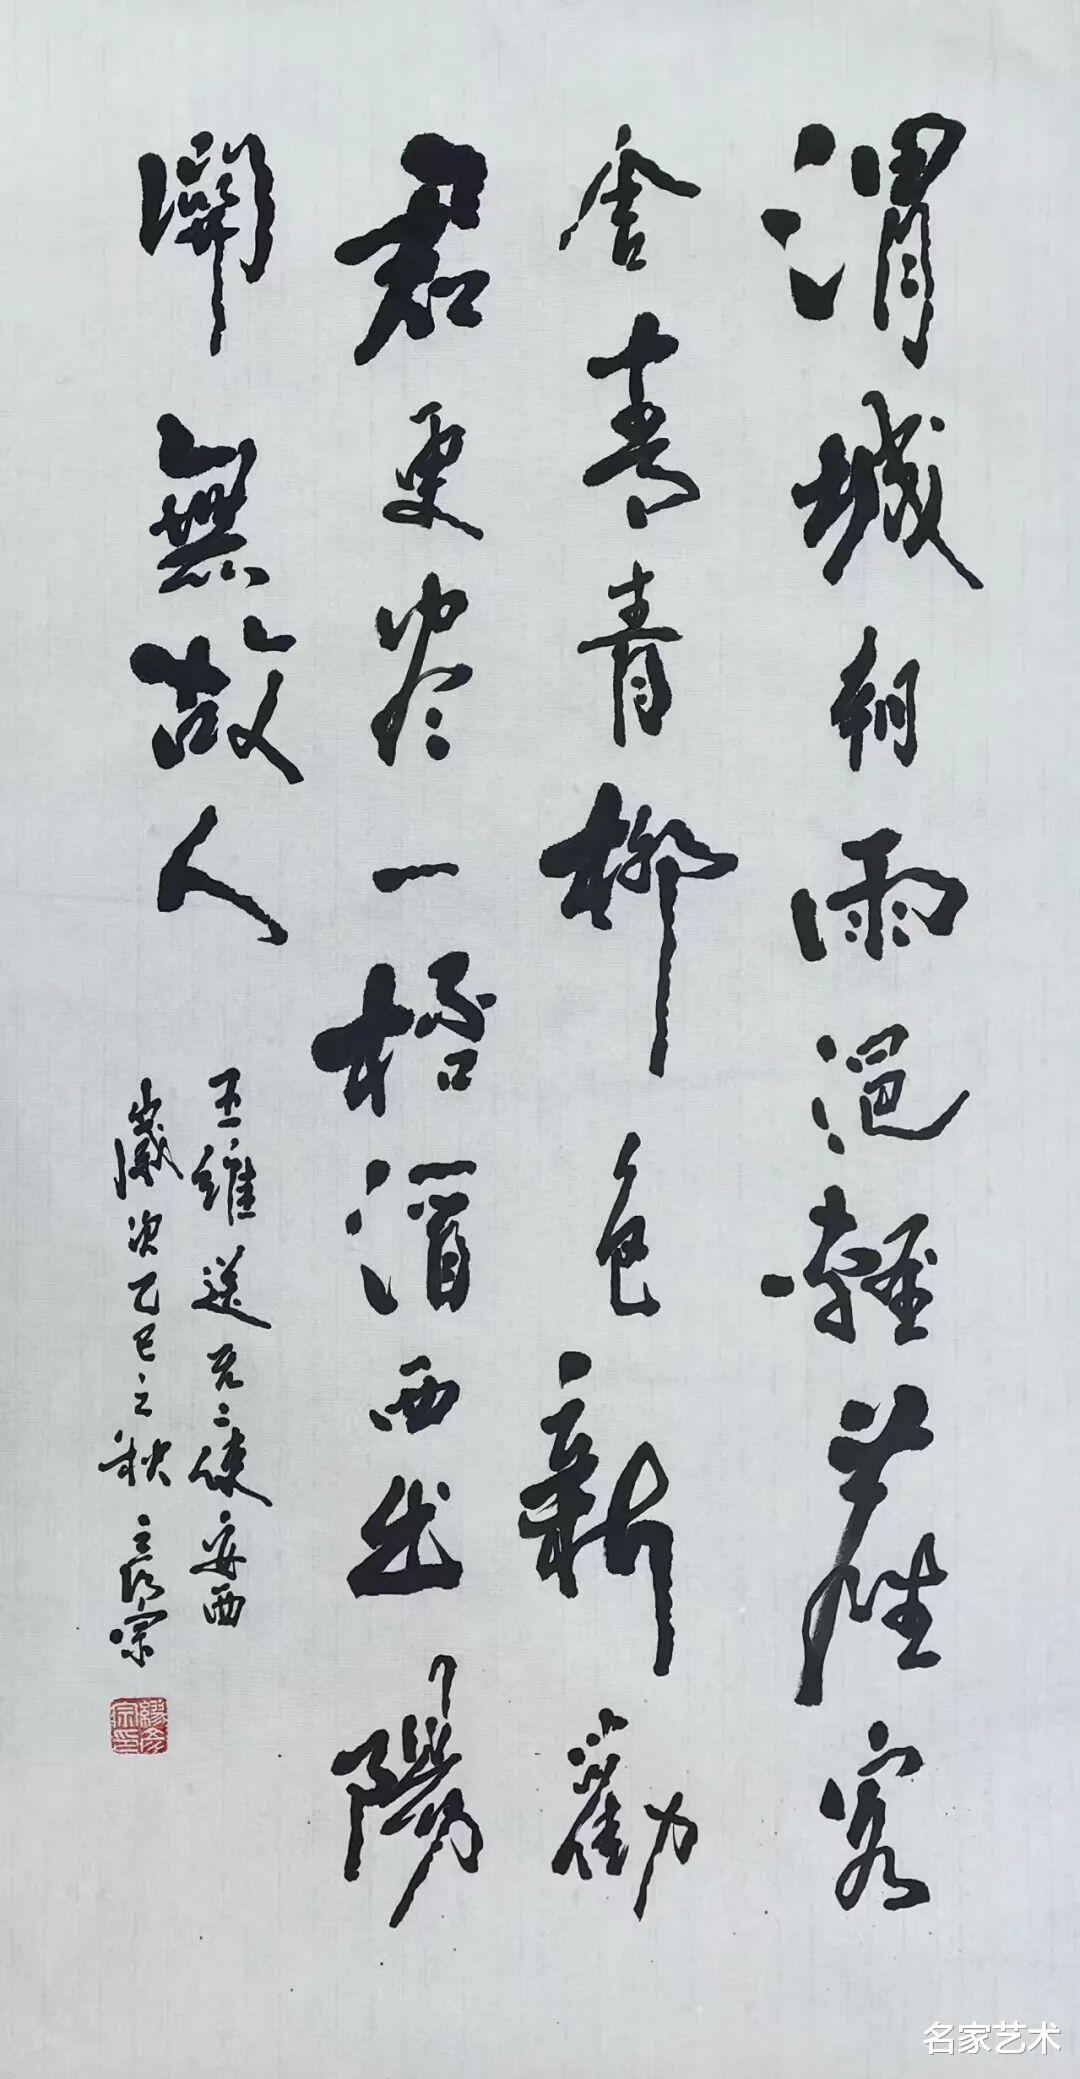 渭城朝雨浥輕塵客
舍青青柳色新勸
君更尽一桮酒西出陽
關無故人
王維送元二使安西
歲次乙巳之秋彦宗
繆彦宗印
名家艺术